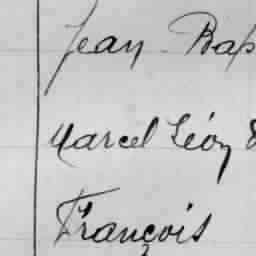 Jean Bap
Marcel Léon &
François